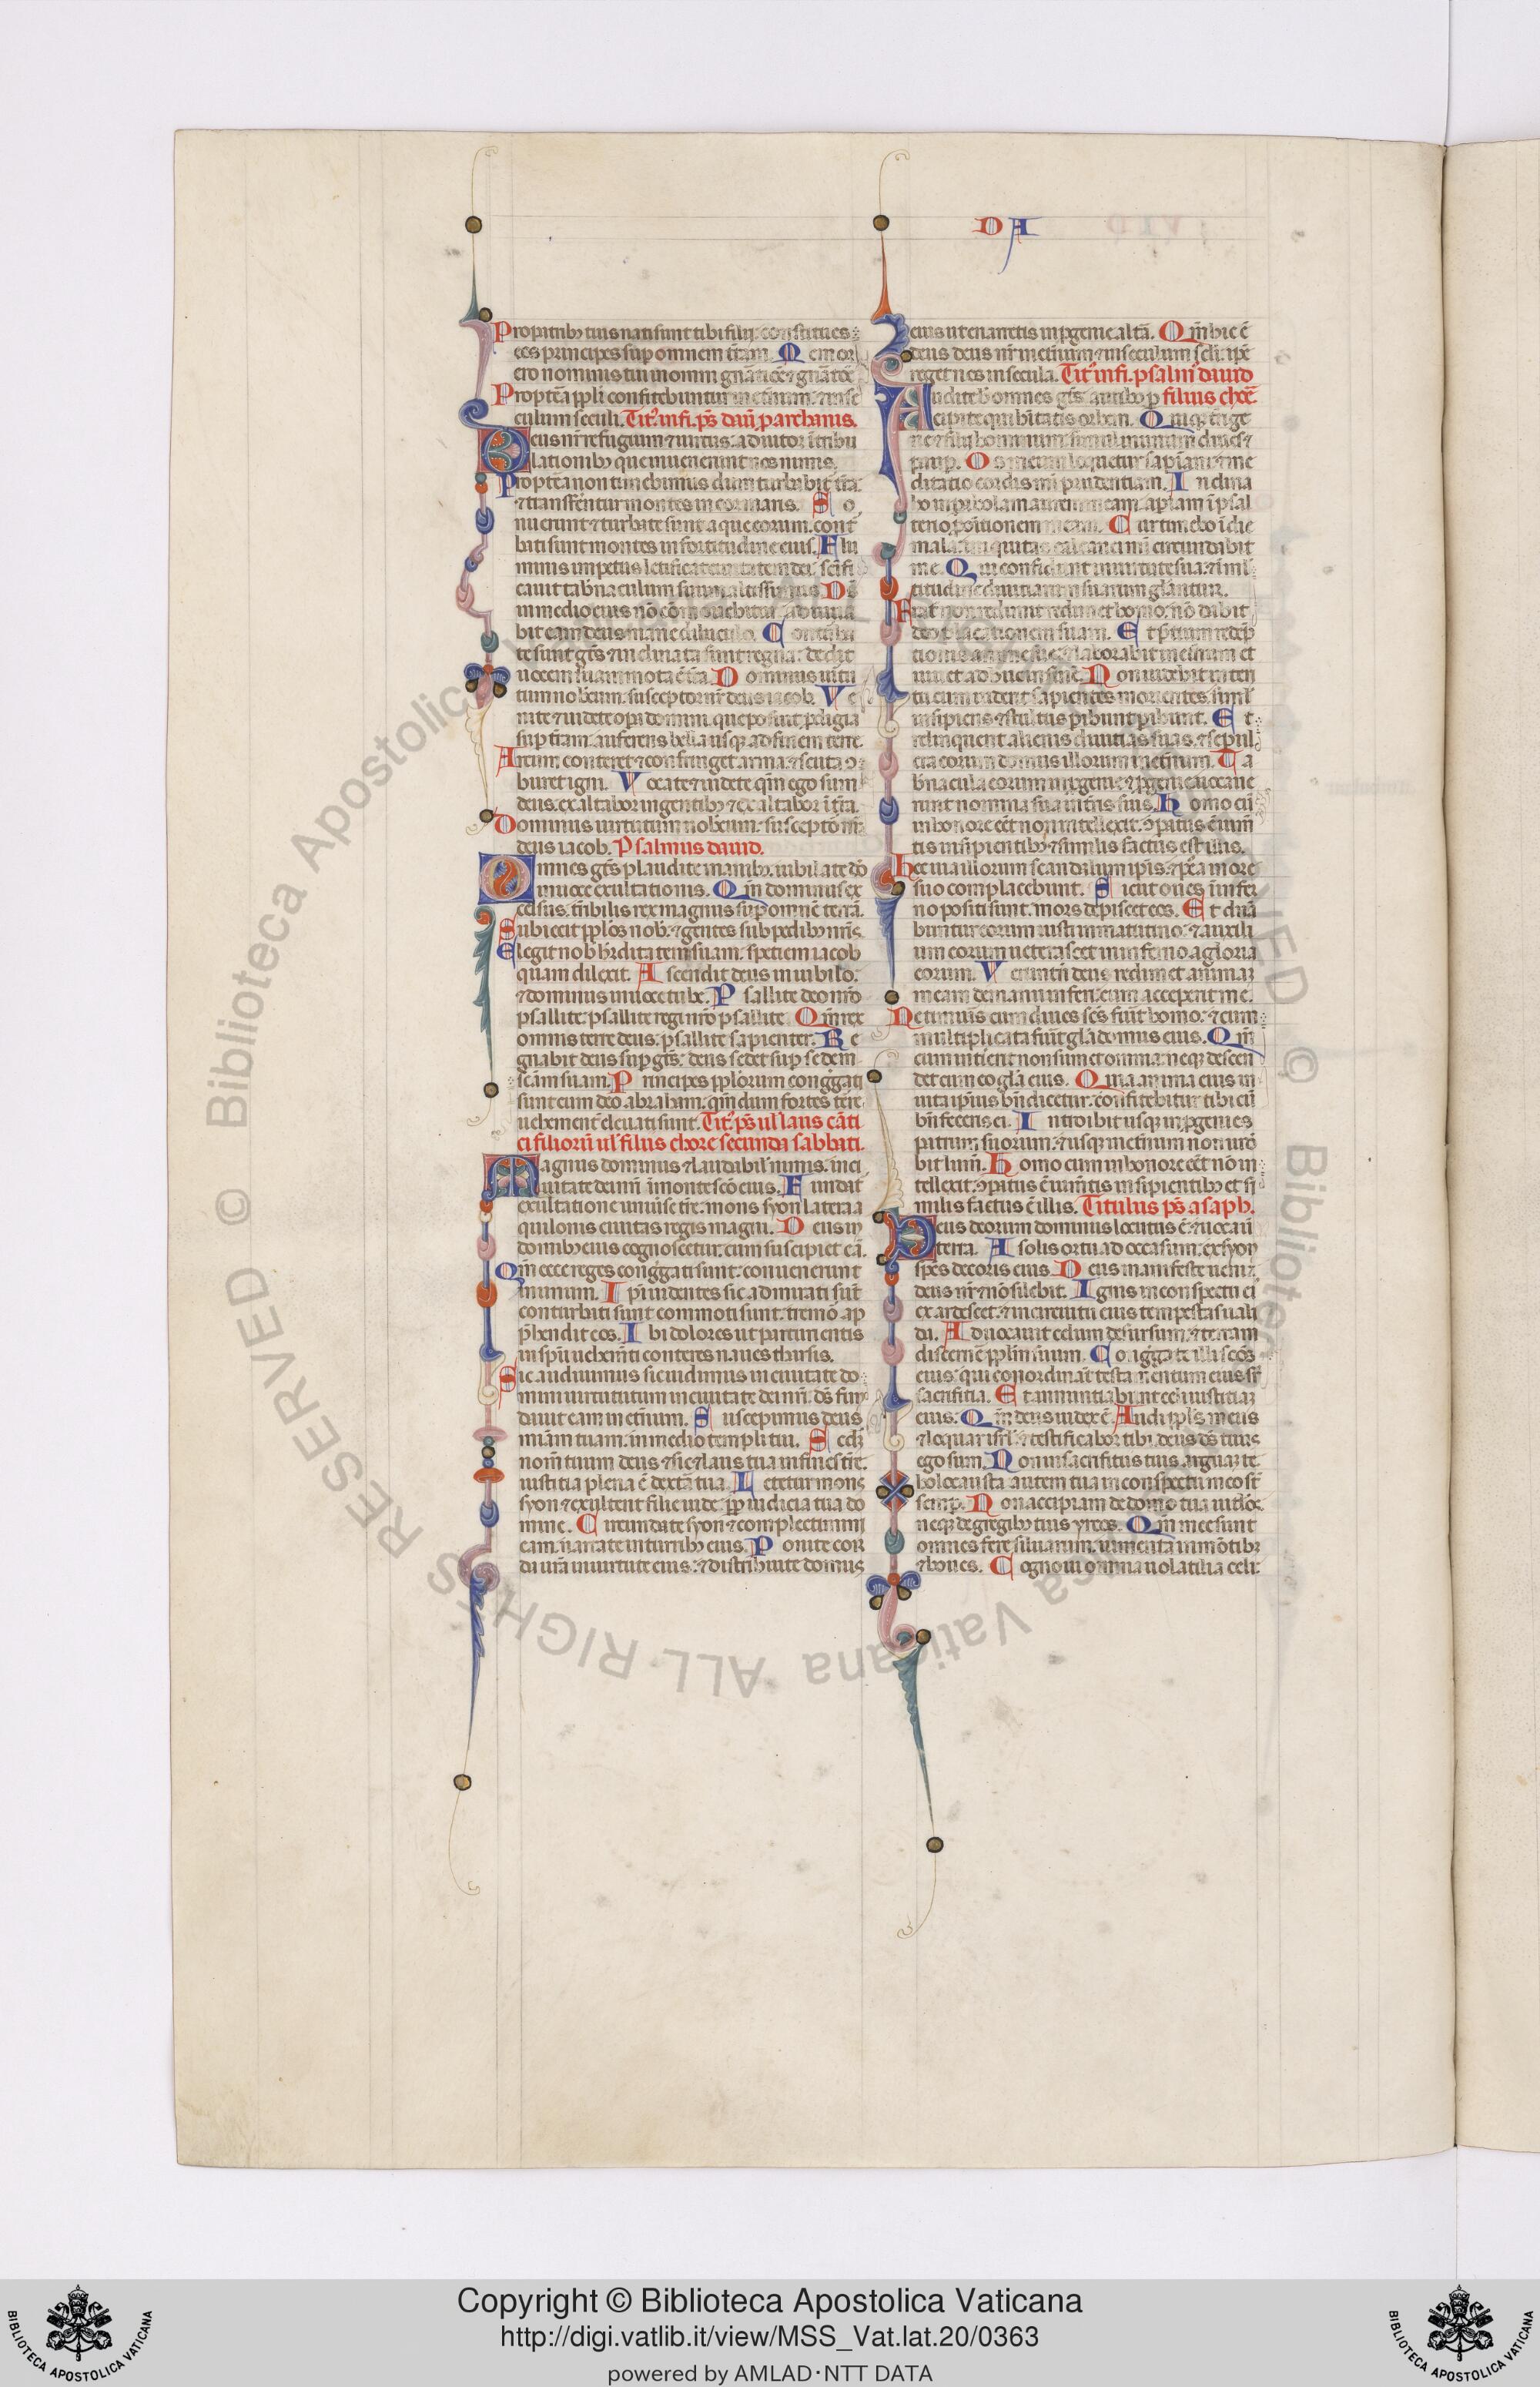 D A
Propatribꝫ tuis nati sunt tibi filii: constitues
eos principes sup omnem t̄ram. Memor
ero nominis tui in omni gn̄atiōe ⁊ gn̄atōe
Proptea ppl̓i confitebuntur in et̓num: ⁊ in se
culum seculi. Tit᷒. in fi. ps̄ dauid p archanis.
Deus nr̄ refugium ⁊ uirtus: adiutor ī tribu
lationibꝫ que inuenerunt nos nimis.
Proptea non timebimus dum turbabit᷒ t̄ra:
⁊ transfērntur montes in cor maris. So
nuerunt ⁊ turbate sunt aque eorum: cont᷒
bati sunt montes in fortitudine eius. Flu
minis impetus letificat ciuitatem dei: sc̄ifi
cauit tab̓naculum suum altissimus. D̄s
in medio eius nō cōmouebitur: adiuua
bit eam deus mane diluculo. Conturba
te sunt gn̄tes ⁊ inclinata sunt regna: dedit
uocem suam mota ē t̄ra. Dominus uirtu
tum nob̄cum: susceptor nr̄ deus iacob. Ve
nite ⁊ uidete opa domini. que posuit pdigia
sup t̄ram: auferens bella usqꝫ ad finem terre.
Arcum conteret ⁊ confringet arma: ⁊ scuta ꝯ
buret igni. Vacate ⁊ uidete qm̄ ego sum
deus: exaltabor in gentibꝫ ⁊ exaltabor ī t̄ra.
Dominus uirtutum nob̄cum: susceptor nr̄
deus iacob. Psalmus dauid.
Omnes gn̄tes plaudite manibꝫ: iubilate dō
in uoce exultationis. Qm̄ dominus ex
celsus. t̓ribilis: rex magnus sup omnē terrā.
Subiecit ppl̓os nob̄: ⁊ gentes sub pedibꝫ nr̄is.
Elegit nob̄ h̓editatem suam: speciem iacob
quam dilexit. Ascendit deus in iubilo:
⁊ dominus in uoce tube. Psallite deo nr̄o
psallite: psallite regi nr̄o psallite. Qm̄ rex
omnis terre deus: psallite sapienter. Re
gnabit deus sup gn̄tes: deus sedet sup sedem
scām suam. Principes ppl̓orum congregati
sunt cum deo abraham: qm̄ dii fortes terre
uehement᷒ eleuati sunt. Tit᷒. ps̄ ul̓ laus cāti
ci filiorū ul̓ filiis chore secunda sabbati.
Magnus dominus ⁊ laudabil̓ nimis: in ci
uitate dei nr̄i ī monte scō eius. Fundat᷒
exultatione uniuerse t̄re: mons syon latera a
quilonis ciuitas regis magni. Deus in
domibꝫ eius cognoscetur: cum suscipiet eā.
Qm̄ ecce reges congregati sunt: conuenerunt
in unum. Ipi uidentes sic admirati sūt
conturbati sunt commoti sunt: tremor ap
p̄hendit eos. Ibi dolores ut parturientis
in spū uehem̄ti conteres naues tharsis.
Sic audiuimus sic uidimus in ciuitate do
mini uirtutum in ciuitate dei nr̄i: d̄s fun
dauit eam in et̓num. Suscepimus deus
miam tuam. in medio templi tui. Sed᷒m
nom̄ tuum deus ⁊ sic ⁊ laus tua in fines t̄re:
iustitia plena ē dext̓a tua. Letetur mons
syon ⁊ exultent filie iude: ppt̓ iudicia tua do
mine. Circundate syon ⁊ complectimini
eam. narrate in turribꝫ eius. Ponite cor
da ur̄a in uirtute eius: ⁊ distribuite domus
eius ut enarretis in pgenie altā. Qm̄ hic ē
deus deus nr̄ in et̓num ⁊ in seculum scl̓i: ipe
reget nos in secula. Tit᷒. in fi. psalm̄ dauid
Audite h̄ omnes gn̄tes: auribꝫ p filiis chore
cipite qui h̄itatis orbem. Quiqꝫ t̓rige
ne ⁊ filii hominum: simul in unum diues ⁊
paup. Os meum loquetur sap̄iam: ⁊ me
ditatio cordis mei prudentiam. Inclina
bo in parabolam aurem meam: apiam ī psal
terio ppositionem meam. Cur timebo ī die
mala: iniquitas calcanei mei circundabit
me. Qui confidunt in uirtute sua: ⁊ ī mul
titudine diuitiarum suarum gl̓iantur.
Frat᷒ non redimit redimet homo: nō dabit
deo placationem suam. Et pretium redēp
tionis anime sue: ⁊ laborabit in et̓num et
uiuet adhuc in finē. Non uidebit interi
tum cum uiderit sapientes morientes: simul
insipiens ⁊ stultus peribunt. Et
relinquent alienis diuitias suas: ⁊ sepul
cra eorum domus illorum in et̓num. Ta
b̓nacula eorum in pgenie ⁊ pgenie: uocaue
runt nomina sua in t̓ris suis. Homo cū
in honore eēt non intellexit: ꝯparatus ē iumē
tis insipientibꝫ ⁊ similis factus est illis.
Hec uia illorum scandalum ipis: ⁊ p̄ea in ore
suo complacebunt. Sicut oues ī infer
no positi sunt: mors depascet eos. Et dn̄a
buntur eorum iusti in matutino: ⁊ auxili
um eorum ueterascet in inferno a gloria
eorum. Veruntn̄ deus redimet animam
meam de manu inferi: cum acceperit me.
Ne timu᷒is cum diues fc̄s fu᷒it homo: ⁊ cum
multiplicata fu᷒it gl̓ia domus eius. Qm̄
cum interierit non sumet omnia: neqꝫ descen
det cum eo gl̓ia eius. Quia anima eius in
uita ipius bn̄dicetur: confitebitur tibi cū
bn̄feceris ei. Introibit usqꝫ in pgenies
patrum suorum: ⁊ usqꝫ in et̓num non uide
bit lum̄. Homo cum in honore eēt nō in
tellexit: ꝯparatus ē iumētis insipientibꝫ et si
milis factus ē illis. Titulus ps̄ asaph.
Deus deorum dominus locutus ē: ⁊ uocauit
terra. A solis ortu ad occasum: ex syon
spēs decoris eius. Deus manifeste ueniet:
deus nr̄ ⁊ nō silebit. Ignis in conspectu ei᷒
exardescet: ⁊ in circuitu eius tempestas uali
da. Aduocauit celum desursum: ⁊ terram
discernē pplm̄ suum. Congregate illi scōs
eius: qui conordinant testamentum eius sup
sacrifitia. Et annuntiabunt celi iustitiam
eius: Qm̄ deus iudex ē. Audi ppl̓s meus
⁊ loquar isrl̓: ⁊ testificabor tibi. deus d̄s tuus
ego sum. Non in sacrifitiis tuis arguam te:
holocausta autem tua in conspectu meo st̄
semp. Non accipiam de domo tua uitulos:
neqꝫ de gregibꝫ tuis yrcos. Qm̄ mee sunt
omnes fere siluarum: iumenta in mōtibꝫ
⁊ boues. Cognoui omnia uolatilia celi:
Copyright © Biblioteca Apostolica Vaticana
http://digi.vatlib.it/view/MSS_Vat.lat.20/0363
powered by AMLAD·NTT DATA
BIBLIOTECA APOSTOLICA VATICANA
BIBLIOTECA APOSTOLICA VATICANA